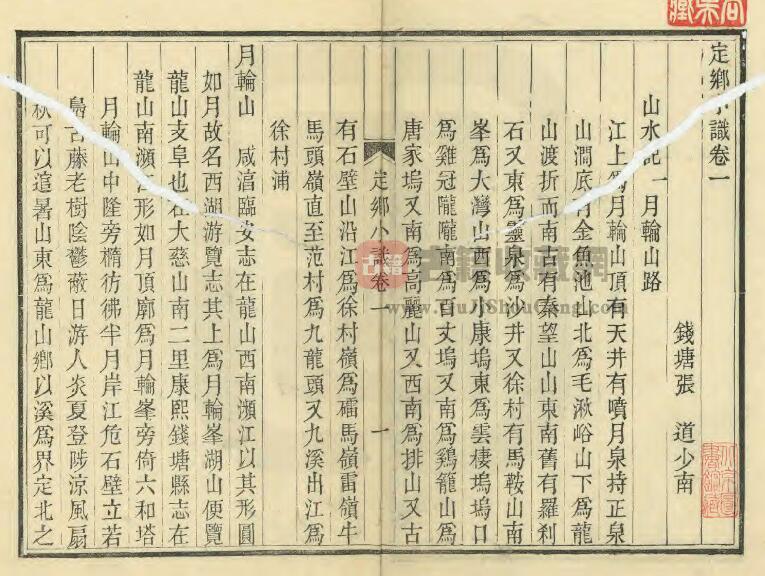 定鄉小識卷一
錢塘張　道少南
山水記一　月輪山路
江上爲月輪山頂有天井有噴月泉持正泉
山澗底有金魚池山北爲毛湫峪山下爲龍
山渡折而南古有秦望山山東南舊有羅刹
石又東爲靈泉爲沙井又徐村有馬鞍山南
峯爲大灣山西爲小康塢東爲雲棲塢塢口
爲雞冠隴隴南爲百丈塢又南爲鷄籠山爲
唐家塢又南爲高麗山又西南爲排山又古
定鄉小識卷一　一
有石壁山沿江爲徐村嶺爲礌馬嶺雷嶺牛
馬頭嶺直至范村爲九龍頭又九溪出江爲
徐村浦
月輪山　咸淳臨安志在龍山西南瀕江以其形圓
如月故名西湖游覽志其上爲月輪峯湖山便覽
龍山支阜也在大慈山南二里康熙錢塘縣志在
龍山南瀕江形如月頂廓爲月輪峯旁倚六和塔
月輪山中隆旁橢彷彿半月岸江危石壁立若
鳧古藤老樹陰鬱蔽日游人炎夏登陟涼風扇
秋可以逭暑山東爲龍山鄉以溪爲界定北之
古籍收藏網
www.GuJiShouCang.com